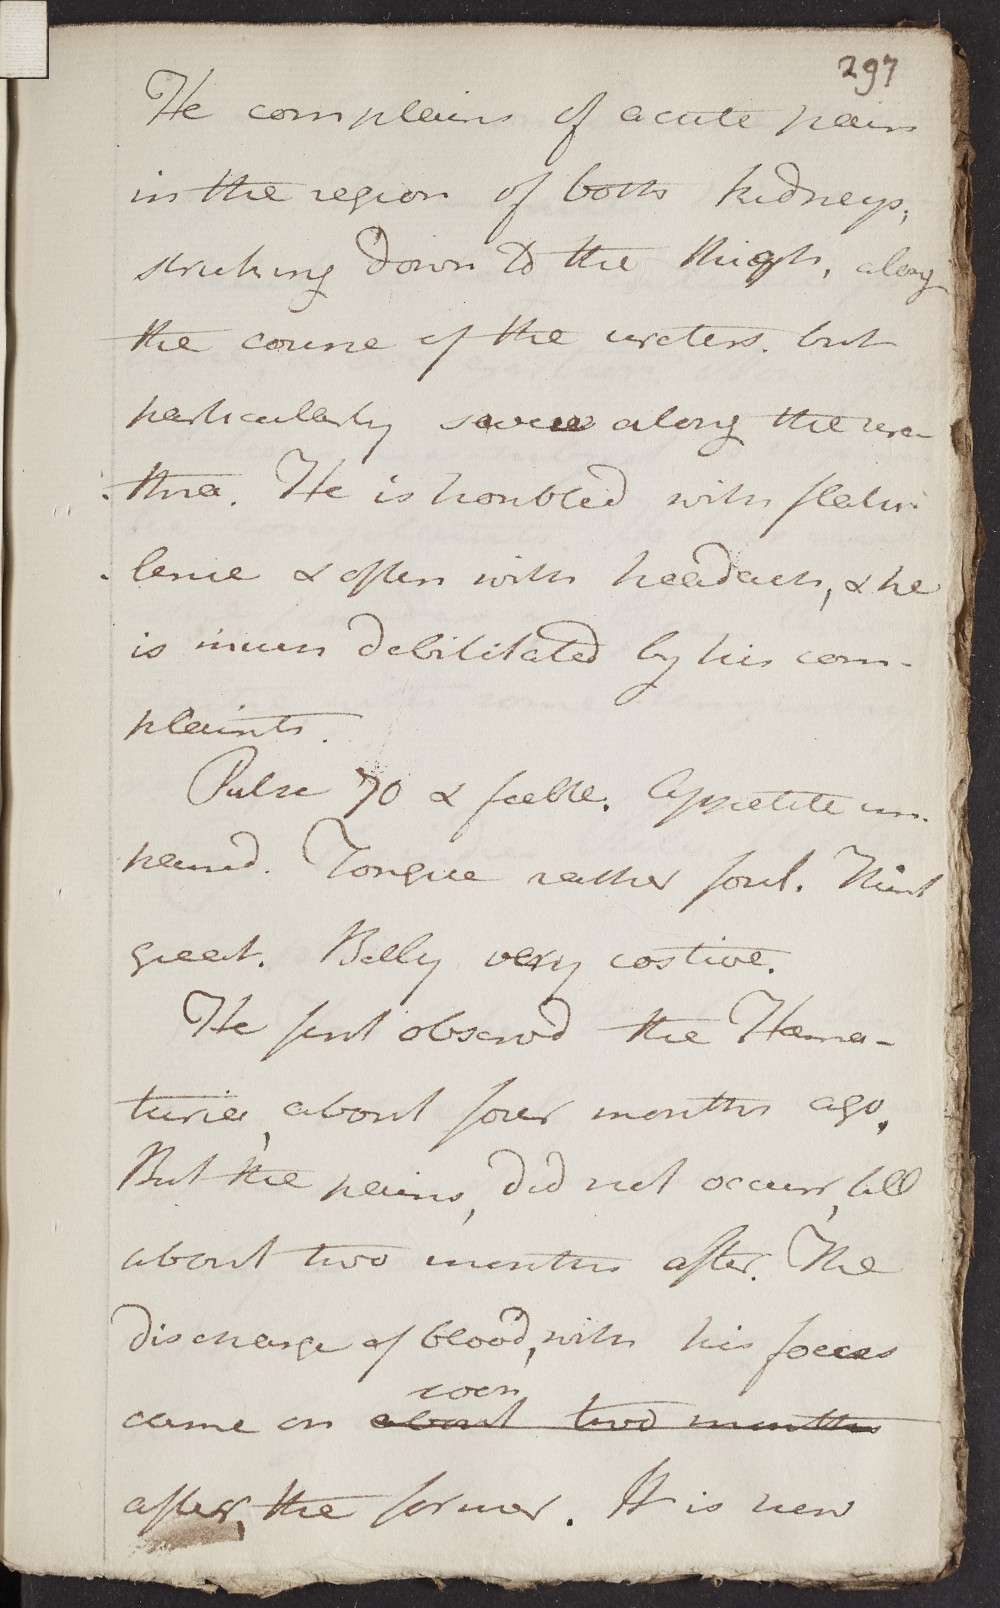 297
He complains of acute pains
in the region of both kidneys,
striking down to the thigh, along
the course of the ureters. but
particularly severe along the ure-
:thra. He is troubled with flatu:
:lence & often with headach, & he
is much debilitated by his com-
plaints.
Pulse 70 & feeble. Appetite im-
paired. Tongue rather foul. Thirst
great. Belly very costive.
He first observed the Hema-
turia, about four months ago.
But the pains, did not occurr, till
about two months after. The
discharge of blood, with his foeces
soon
came on about two months
after, the former. It is now